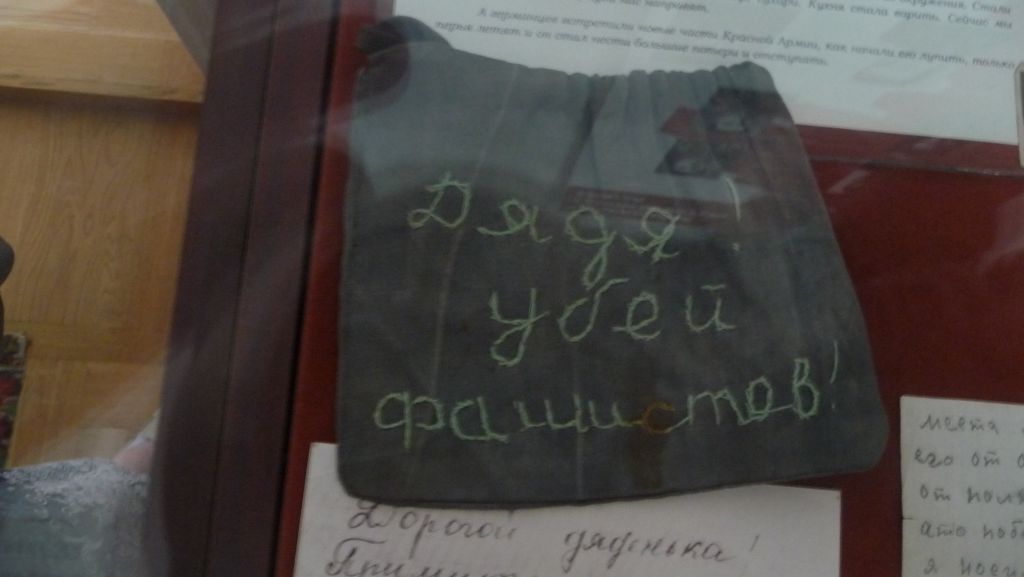 окружения. Стали
Кухня стала варить. Сейчас мы
А германцев встретили новые части Красной Армии, как начали его лупить, только
перья летят и он стал нести большие потери и отступать.
Дядя!
убей
фашистов!
Дорогой дяденька!
места
его от
от
я